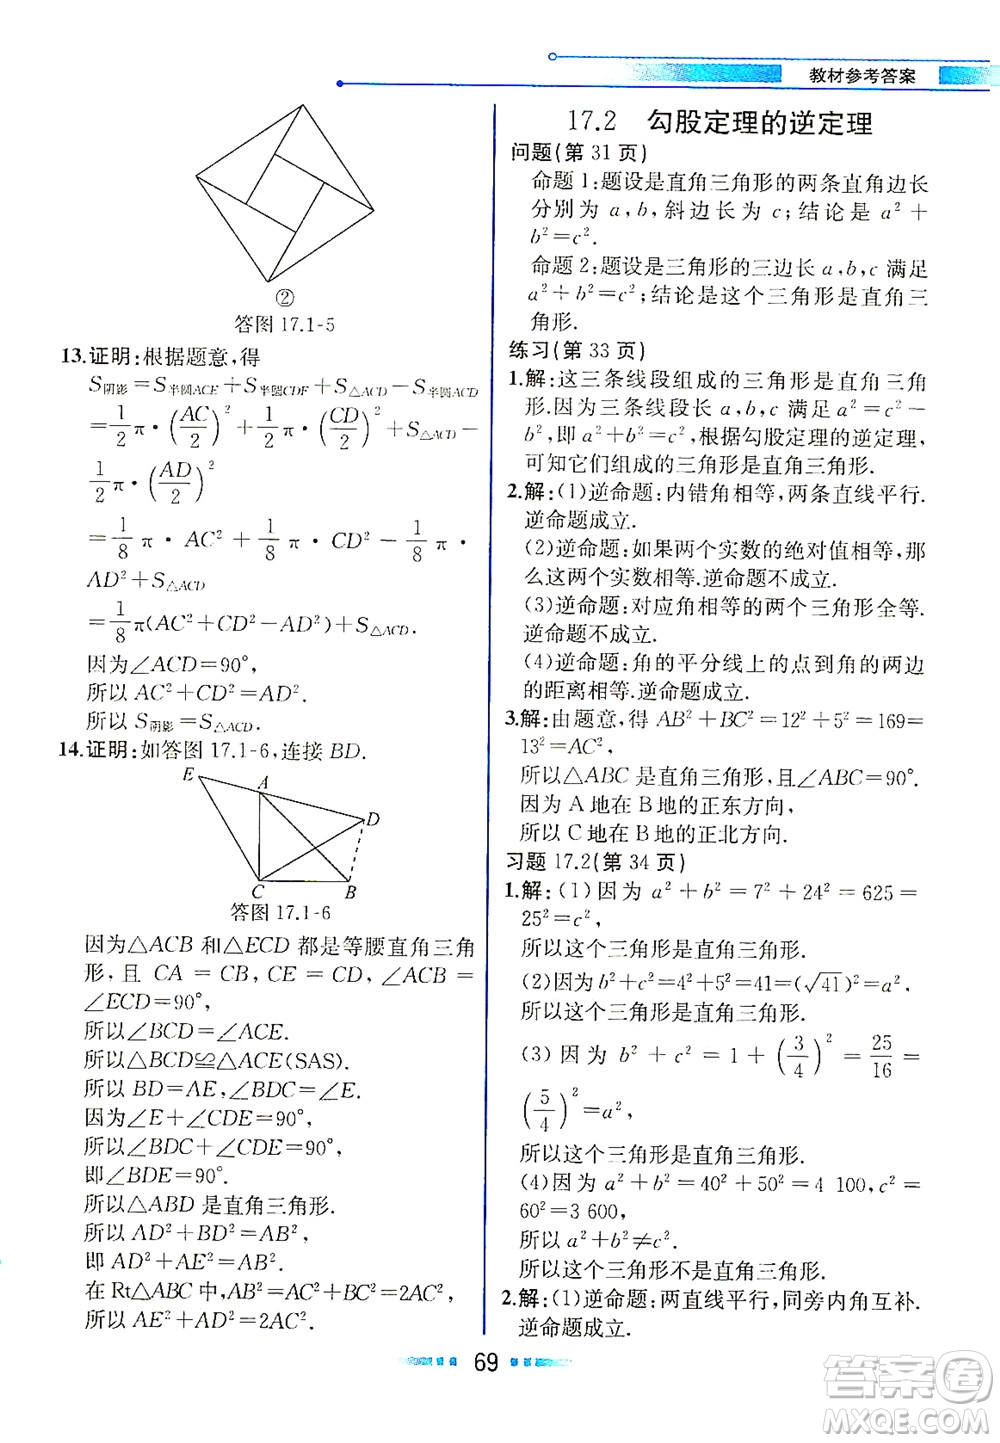 教材参考答案
②
答图 17.1-5
13.证明:根据题意,得
S阴影=S半圆ACE+S半圆CDF+S△ACD-S半圆ACD
=1/2π·(AC/2)²+1/2π·(CD/2)²+S△ACD-
1/2π·(AD/2)²
=1/8π·AC²+1/8π·CD²-1/8π·
AD²+S△ACD
=1/8π(AC²+CD²-AD²)+S△ACD.
因为∠ACD=90°,
所以 AC²+CD²=AD².
所以 S阴影=S△ACD.
14.证明:如答图 17.1-6,连接 BD.
E
A
D
C
B
答图 17.1-6
因为△ACB 和△ECD 都是等腰直角三角
形,且 CA=CB,CE=CD,∠ACB=
∠ECD=90°,
所以∠BCD=∠ACE.
所以△BCD≌△ACE(SAS).
所以 BD=AE,∠BDC=∠E.
因为∠E+∠CDE=90°,
所以∠BDC+∠CDE=90°.
即∠BDE=90°.
所以△ABD 是直角三角形.
所以 AD²+BD²=AB²,
即 AD²+AE²=AB².
在 Rt△ABC 中,AB²=AC²+BC²=2AC²,
所以 AE²+AD²=2AC².
17.2 勾股定理的逆定理
问题(第 31 页)
命题 1:题设是直角三角形的两条直角边长
分别为 a,b,斜边长为 c;结论是 a²+
b²=c².
命题 2:题设是三角形的三边长 a,b,c 满足
a²+b²=c²;结论是这个三角形是直角三
角形.
练习(第 33 页)
1.解:这三条线段组成的三角形是直角三角
形.因为三条线段长 a,b,c 满足 a²=c²-
b²,即 a²+b²=c²,根据勾股定理的逆定理,
可知它们组成的三角形是直角三角形.
2.解:(1)逆命题:内错角相等,两条直线平行.
逆命题成立.
(2)逆命题:如果两个实数的绝对值相等,那
么这两个实数相等.逆命题不成立.
(3)逆命题:对应角相等的两个三角形全等.
逆命题不成立.
(4)逆命题:角的平分线上的点到角的两边
的距离相等.逆命题成立.
3.解:由题意,得 AB²+BC²=12²+5²=169=
13²=AC²,
所以△ABC 是直角三角形,且∠ABC=90°.
因为 A 地在 B 地的正东方向,
所以 C 地在 B 地的正北方向.
习题 17.2(第 34 页)
1.解:(1)因为 a²+b²=7²+24²=625=
25²=c²,
所以这个三角形是直角三角形.
(2)因为 b²+c²=4²+5²=41=(√41)²=a².
所以这个三角形是直角三角形.
(3)因为 b²+c²=1+(3/4)²=25/16=
(5/4)²=a²,
所以这个三角形是直角三角形.
(4)因为 a²+b²=40²+50²=4 100,c²=
60²=3 600,
所以 a²+b²≠c².
所以这个三角形不是直角三角形.
2.解:(1)逆命题:两直线平行,同旁内角互补.
逆命题成立.
69
答案圈
MXQE.COM